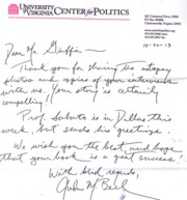 UNIVERSITY of VIRGINIA CENTER for POLITICS
10-22-13
Dear Mr.
Thank you for sharing the autopsy
photos and copies of your interviews
with me. Your story is certainly
compelling.
Prof. Sabato is in Dallas this
week, but sends his greetings.
We wish you the best and hope
that your book is a great success!
With best regards,